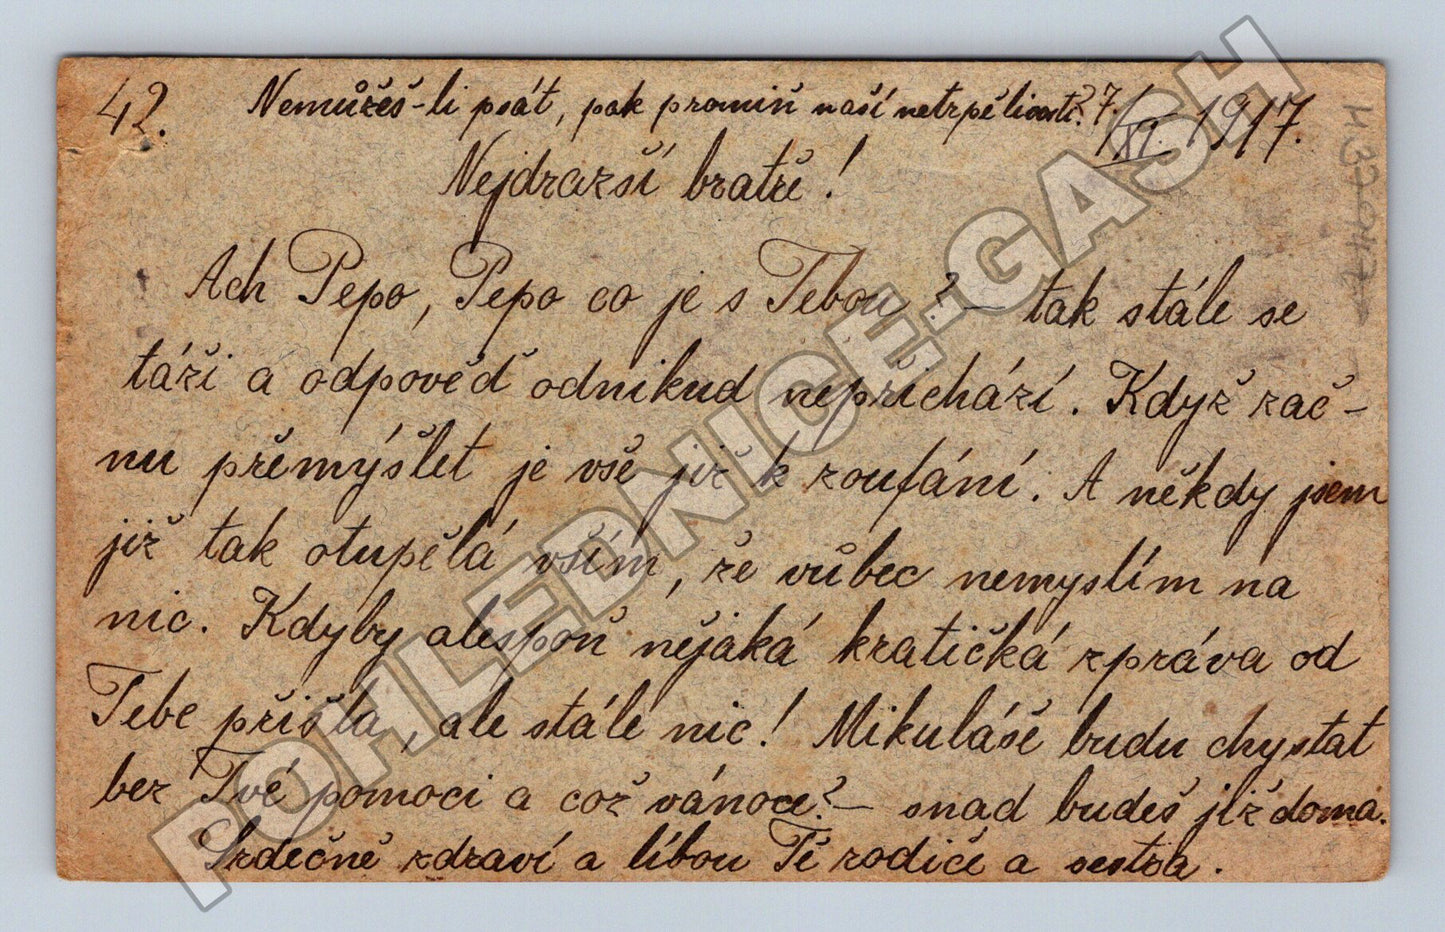 42. Nemůžeš-li psát, pak promiň naší netrpělivosti. 27./XI. 1917.
Nejdražší bratře!
Ach Pepo, Pepo co je s Tebou? — tak stále se
táži a odpověď odnikud nepřichází. Když zač-
nu přemýšlet je vše již k zoufání. A někdy jsem
již tak otupělá vším, že vůbec nemyslím na
nic. Kdyby alespoň nějaká kratičká zpráva od
Tebe přišla, ale stále nic! Mikuláše budu chystat
bez Tvé pomoci a což vánoce? — snad budeš již doma.
Srdečně zdraví a líbou Tě rodiče a sestra.
POHLEDNICE-GASH